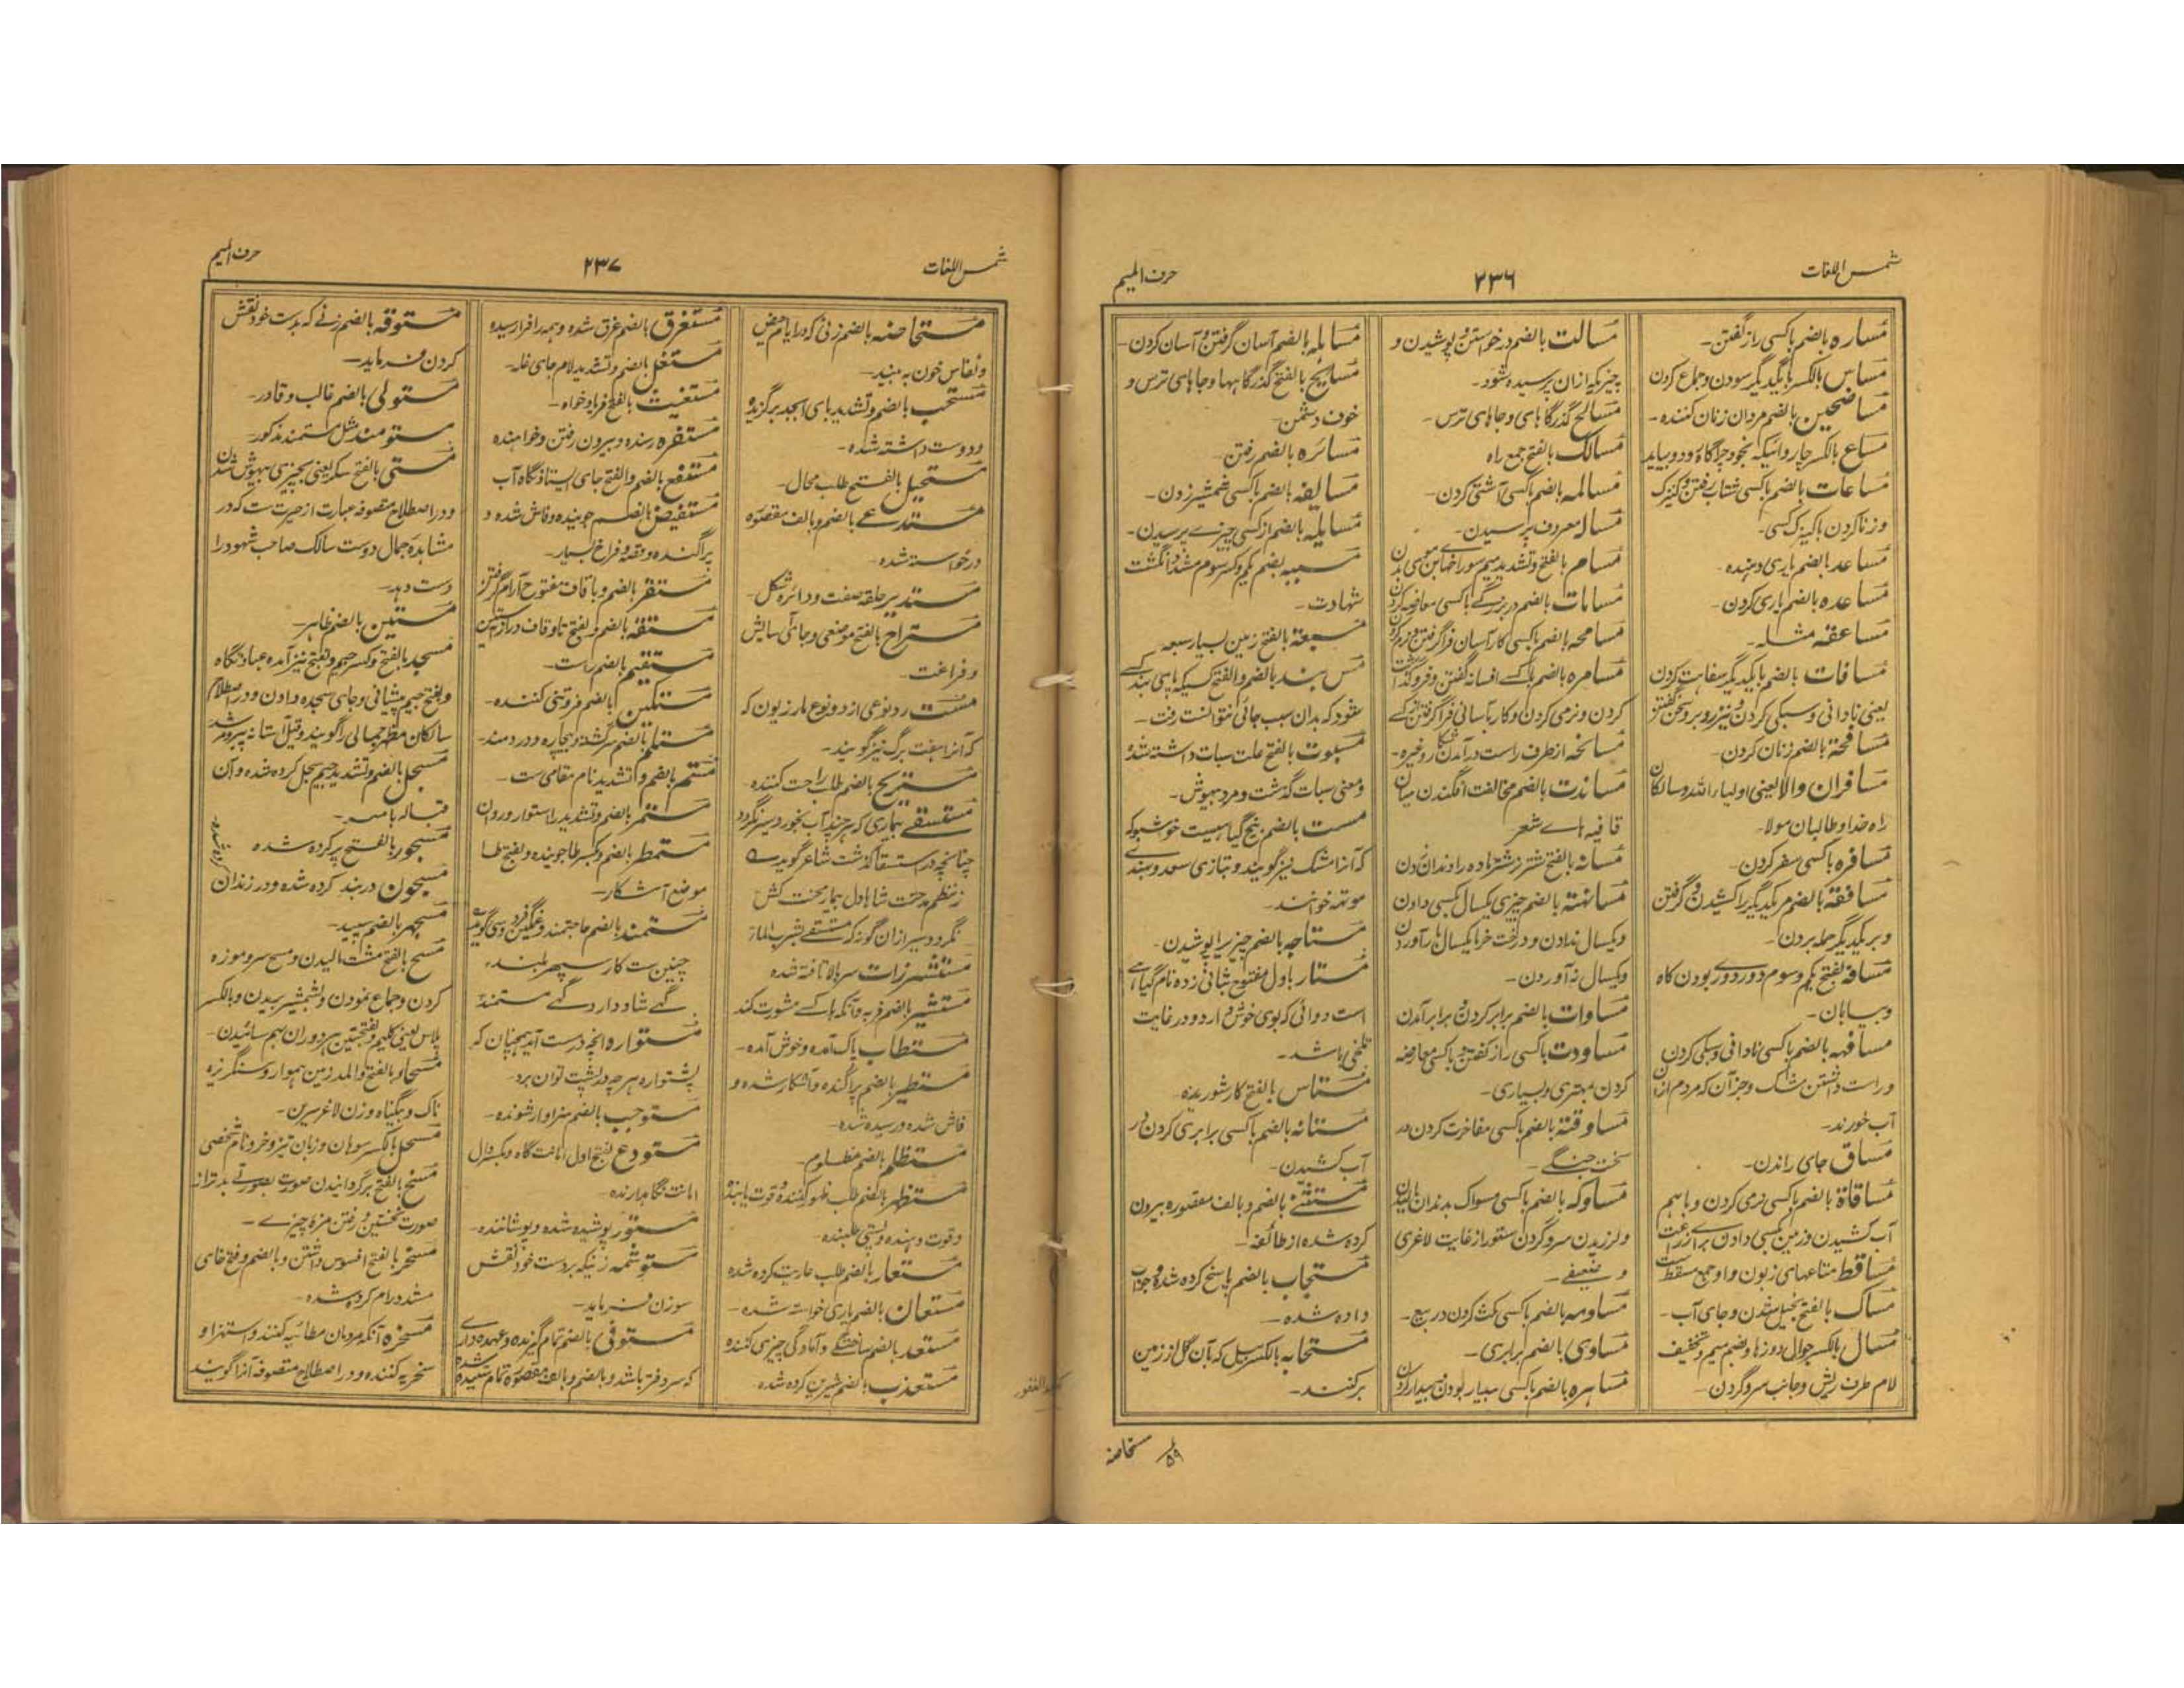 شمس اللغات
۲۳۶
حرف المیم
مساره بالضم باکسی راز گفتن۔
مساس بالکسر با یکدیگر سودن و جماع کردن
مساضحین بالضم مردان زنان کننده۔
مساع بالکسر چاروائیکه بخود چراگاه رود و بیاید
مساعات بالضم باکسی شتاب رفتن و کنیزک
و زنا کردن با کنیزک کسی۔
مساعد بالضم یاری دهنده۔
مساعده بالضم یاری کردن۔
مساعفه مثله۔
مسافات بالضم با یکدیگر سفاهت کردن
یعنی نادانی و سبکی کردن و نیز روبرو سخن گفتن
مسافحة بالضم زنان کردن۔
مسافران والا یعنی اولیاء الله و سالکان
راه خدا و طالبان مولا۔
مسافره باکسی سفر کردن۔
مسافقة بالضم مر یکدیگر را کشیدن و گرفتن
و بر یکدیگر حمله بردن۔
مسافه بفتح یکم و سوم دور دور بودن گاه
و بیابان۔
مسافهه بالضم باکسی نادانی و سبکی کردن
و راست داشتن مشک و جز آن که مردم ازو
آب خورند۔
مساق جای راندن۔
مساقاة بالضم باکسی نرمی کردن و باهم
آب کشیدن و زمین بکسی دادن برای زراعت
مساقط متاعهای زبون و او جمع مسقط است
مساک بالفتح بخیل شدن و جای آب۔
مسال بالکسر جوال دوزها و بضم میم و تخفیف
لام طرف ریش و جانب سر و گردن۔
مسالت بالضم درخواستن و پوشیدن و
چیزیکه ازان پرسیده شود۔
مسالح گذرگاهای و جاهای ترس۔
مسالک بالفتح جمع راه
مسالمه بالضم باکسی آشتی کردن۔
مساله معروف پرسیدن۔
مسام بالفتح و تشدید میم سوراخها بن موی بدن
مسامات بالضم در بزرگی باکسی معارضه کردن
مسامحه بالضم باکسی کار آسان فراگرفتن و نرم کردن
مسامره بالضم باکسے افسانه گفتن و فروگذاشت
کردن و نرمی کردن و کار بآسانی فراگرفتن از کسے
مسانحه از طرف راست در آمدن شکار و غیره۔
مساندت بالضم مخالفت افگندن میان
قافیه هاے شعر
مسانه بالفتح نشتر زدن
مسانهتة بالضم چیزی یکسال بکسی دادن
و یکسال ندادن و درخت خرما یکسال بار آوردن
و یکسال نه آوردن۔
مساوات بالضم برابر کردن و برابر آمدن
مساودت باکسی راز گفتن و باکسی معارضه
کردن بمهتری و بسیاری۔
مساوقة بالضم باکسی مفاخرت کردن در
سخت جنگے۔
مساوکه بالضم باکسی مسواک بدندان مالیدن
و لرزیدن سر و گردن ستور از غایت لاغری
و ضعیفے۔
مساومه بالضم باکسی مکث کردن در بیع۔
مساوی بالضم برابری۔
مساهره بالضم باکسی بیدار بودن و بیدار کردن
مساهله بالضم آسان گرفتن و آسان کردن۔
مسایح بالفتح گذرگاهها و جاهای ترس و
خوف دشمن۔
مسائره بالضم رفتن۔
مسایفه بالضم باکسی شمشیر زدن۔
مسایله بالضم از کسی چیزے پرسیدن۔
مسبحه بضم یکم و کسر سوم مشدد انگشت
شهادت۔
مسبعة بالفتح زمین بسیار سبعه
مس بند بالضم و الفتح کسیکه پای بند کسے
شود که بدان سبب جائی نتوانست رفت۔
مسبوت بالفتح علت سبات داشته شده
و معنی سبات گذشت و مرد بیهوش۔
مست بالضم بیخ گیاهیست خوشبو که
که آنرا مشک نیز گویند و بتازی سعد و بهندے
موتهه خوانند۔
مستاجه بالضم چیزیرا پوشیدن۔
مستار باول مفتوح بثانی زده نام گیاهے
است دوائی که بوی خوش دارد و در غایت
تلخی باشد۔
مستاس بالفتح کار شوریده۔
مستانه بالضم باکسی برابری کردن در
آب کشیدن۔
مستثنے بالضم و بالف مقصوره بیرون
کرده شده از طائفه۔
مستجاب بالضم پاسخ کرده شده و جواب
داده شده۔
مستحابه بالکسر بیل که بآن گل از زمین
برکنند۔
۵۹
مستحاضه
شمس اللغات
۲۳۷
حرف المیم
مستحاضه بالضم زنی که ورا یام حیض
و نفاس خون به بیند۔
مستحب بالضم و تشدید بای ابجد برگزیده
و دوست داشته شده۔
مستحیل بالفتح طلب محال۔
مستدعے بالضم و بالف مقصوره
درخواسته شده۔
مستدیر حلقه صفت و دائره شکل۔
مستراح بالفتح موضعی و جای آسایش
و فراغت۔
مست رد نوعی از دو نوع مارزیون که
که آنرا هفت برگ نیز گویند۔
مستریح بالضم طلب راحت کننده۔
مستسقے بیماری که هر چند آب بخورد سیر نگردد
چنانچه در استسقا گذشت شاعر گویدے
ز نظم مدحت شاها دل بیمار محنت کش
نگردد سیر ازان گونه که مستسقے بشرب الماز
مستشزرات سر بالا تافته شده
مستشیر بالضم فربه و آنکه باکسے مشورت کند
مستطاب پاک آمده و خوش آمده۔
مستطیر بالضم پراگنده و آشکار شده و
فاش شده و رسیده شده۔
مستظلم بالضم مظلوم۔
مستظهر بالضم طلب ظهور کننده و قوت یابنده
و قوت دهنده و پشتی طلبنده۔
مستعار بالضم طلب عاریت کرده شده
مستعان بالضم یاری خواسته شده۔
مستعد بالضم ساختگے و آمادگی چیزی کننده
مستعذب بالضم شیرین کرده شده۔
مستغرق بالضم غرق شده و همه را فرا رسیده
مستغل بالضم و تشدید لام جای غله۔
مستغیث بالفتح فریاد خواه۔
مستفره رمنده و بیرون رفتن و خواهنده
مستفع بالضم و الفتح جای ایستادنگاه آب
مستفیض بالضم جوینده و فاش شده و
پراگنده و فراخ بسیار۔
مستقر بالضم و با قاف مفتوح آرام گرفتن
مستقیم بالضم راست۔
مستکین بالضم فروتنی کننده۔
مستلم بالضم سرگشته و بیچاره و دردمند۔
مستم بالضم و التشدید نام مقامی ست۔
مستمر بالضم و تشدید را استوار و روان
مستمطر بالضم و بکسر طا جوینده و بفتح طا
موضع آشکار۔
مستمند بالضم حاجتمند و غمگین فردوسی گویدے
چنین ست کار سپهر بلند۔
گهے شاد دارد گهے مستمند
مستواره انچه درست آید همچنان که
پشتواره هر چه در پشت توان برد۔
مستوجب بالضم سزاوار شونده۔
مستودع بفتح اول امانت گاه و بکسر دال
امانت نگاهدارنده۔
مستور پوشیده شده و پوشاننده۔
مستوشمه زنیکه بر دست خود نقش
سوزن فرماید۔
مستوفی بالضم تمام گیرنده و عهده داری
که سر دفتر باشد و بالضم و بالف مقصوره تمام شده
مستوقه بالضم زنے که بدست خود نقش
کردن فرماید۔
مستولی بالضم غالب و قادر۔
مستومند مثل مستمند مذکور۔
مستی بالفتح سکر یعنی بچیزی بیهوش شدن
و در اصطلاح متصوفه عبارت از حیرت ست که در
مشاهده جمال دوست سالک صاحب شهود را
دست دهد۔
مستبین بالضم ظاهر۔
مسجد بالفتح و کسر جیم و بفتح نیز آمده عبادتگاه
و بفتح جیم پیشانی و جای سجده دادن و در اصطلاح
سالکان مظهر جمالی را گویند و قیل آستانه پیر و مرشد
مسجل بالضم و تشدید جیم سجل کرده شده و آن
قباله باشد۔
مسجور بالفتح پر کرده شده
مسجون دربند کرده شده و در زندان
کرده شده۔
مسجهر بالضم سپید۔
مسح بالفتح دست مالیدن و مسح سر و موزه
کردن و جماع نمودن و بشمشیر بریدن و بالکسر
پلاس یعنی گلیم و بفتحتین هر دو ران بهم سائیدن۔
مسحاو بالفتح و المد زمین هموار و سنگریزه
ناک و بیگیاه و زن لاغر سرین۔
مسحل بالکسر سوهان و زبان تیز و خر و نام شخصی
مسخ بالفتح برگردانیدن صورت بصورتے بدتر از
صورت نخستین و رفتن مزه چیزے۔
مسخر بالفتح افسوس داشتن و بالضم و فتح خای
مشدد رام کرده شده۔
مسخره آنکه مردمان مطائبه کنند و استهزا و
سخریه کننده و در اصطلاح متصوفه آنرا گویند